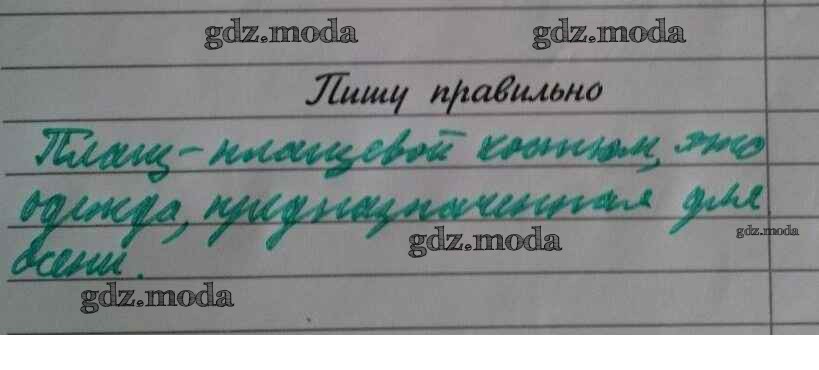 gdz.moda gdz.moda
Пишу правильно
Плащ - плащевой костюм, это
одежда, предназначенная для
gdz.moda gdz.moda
осени.
gdz.moda